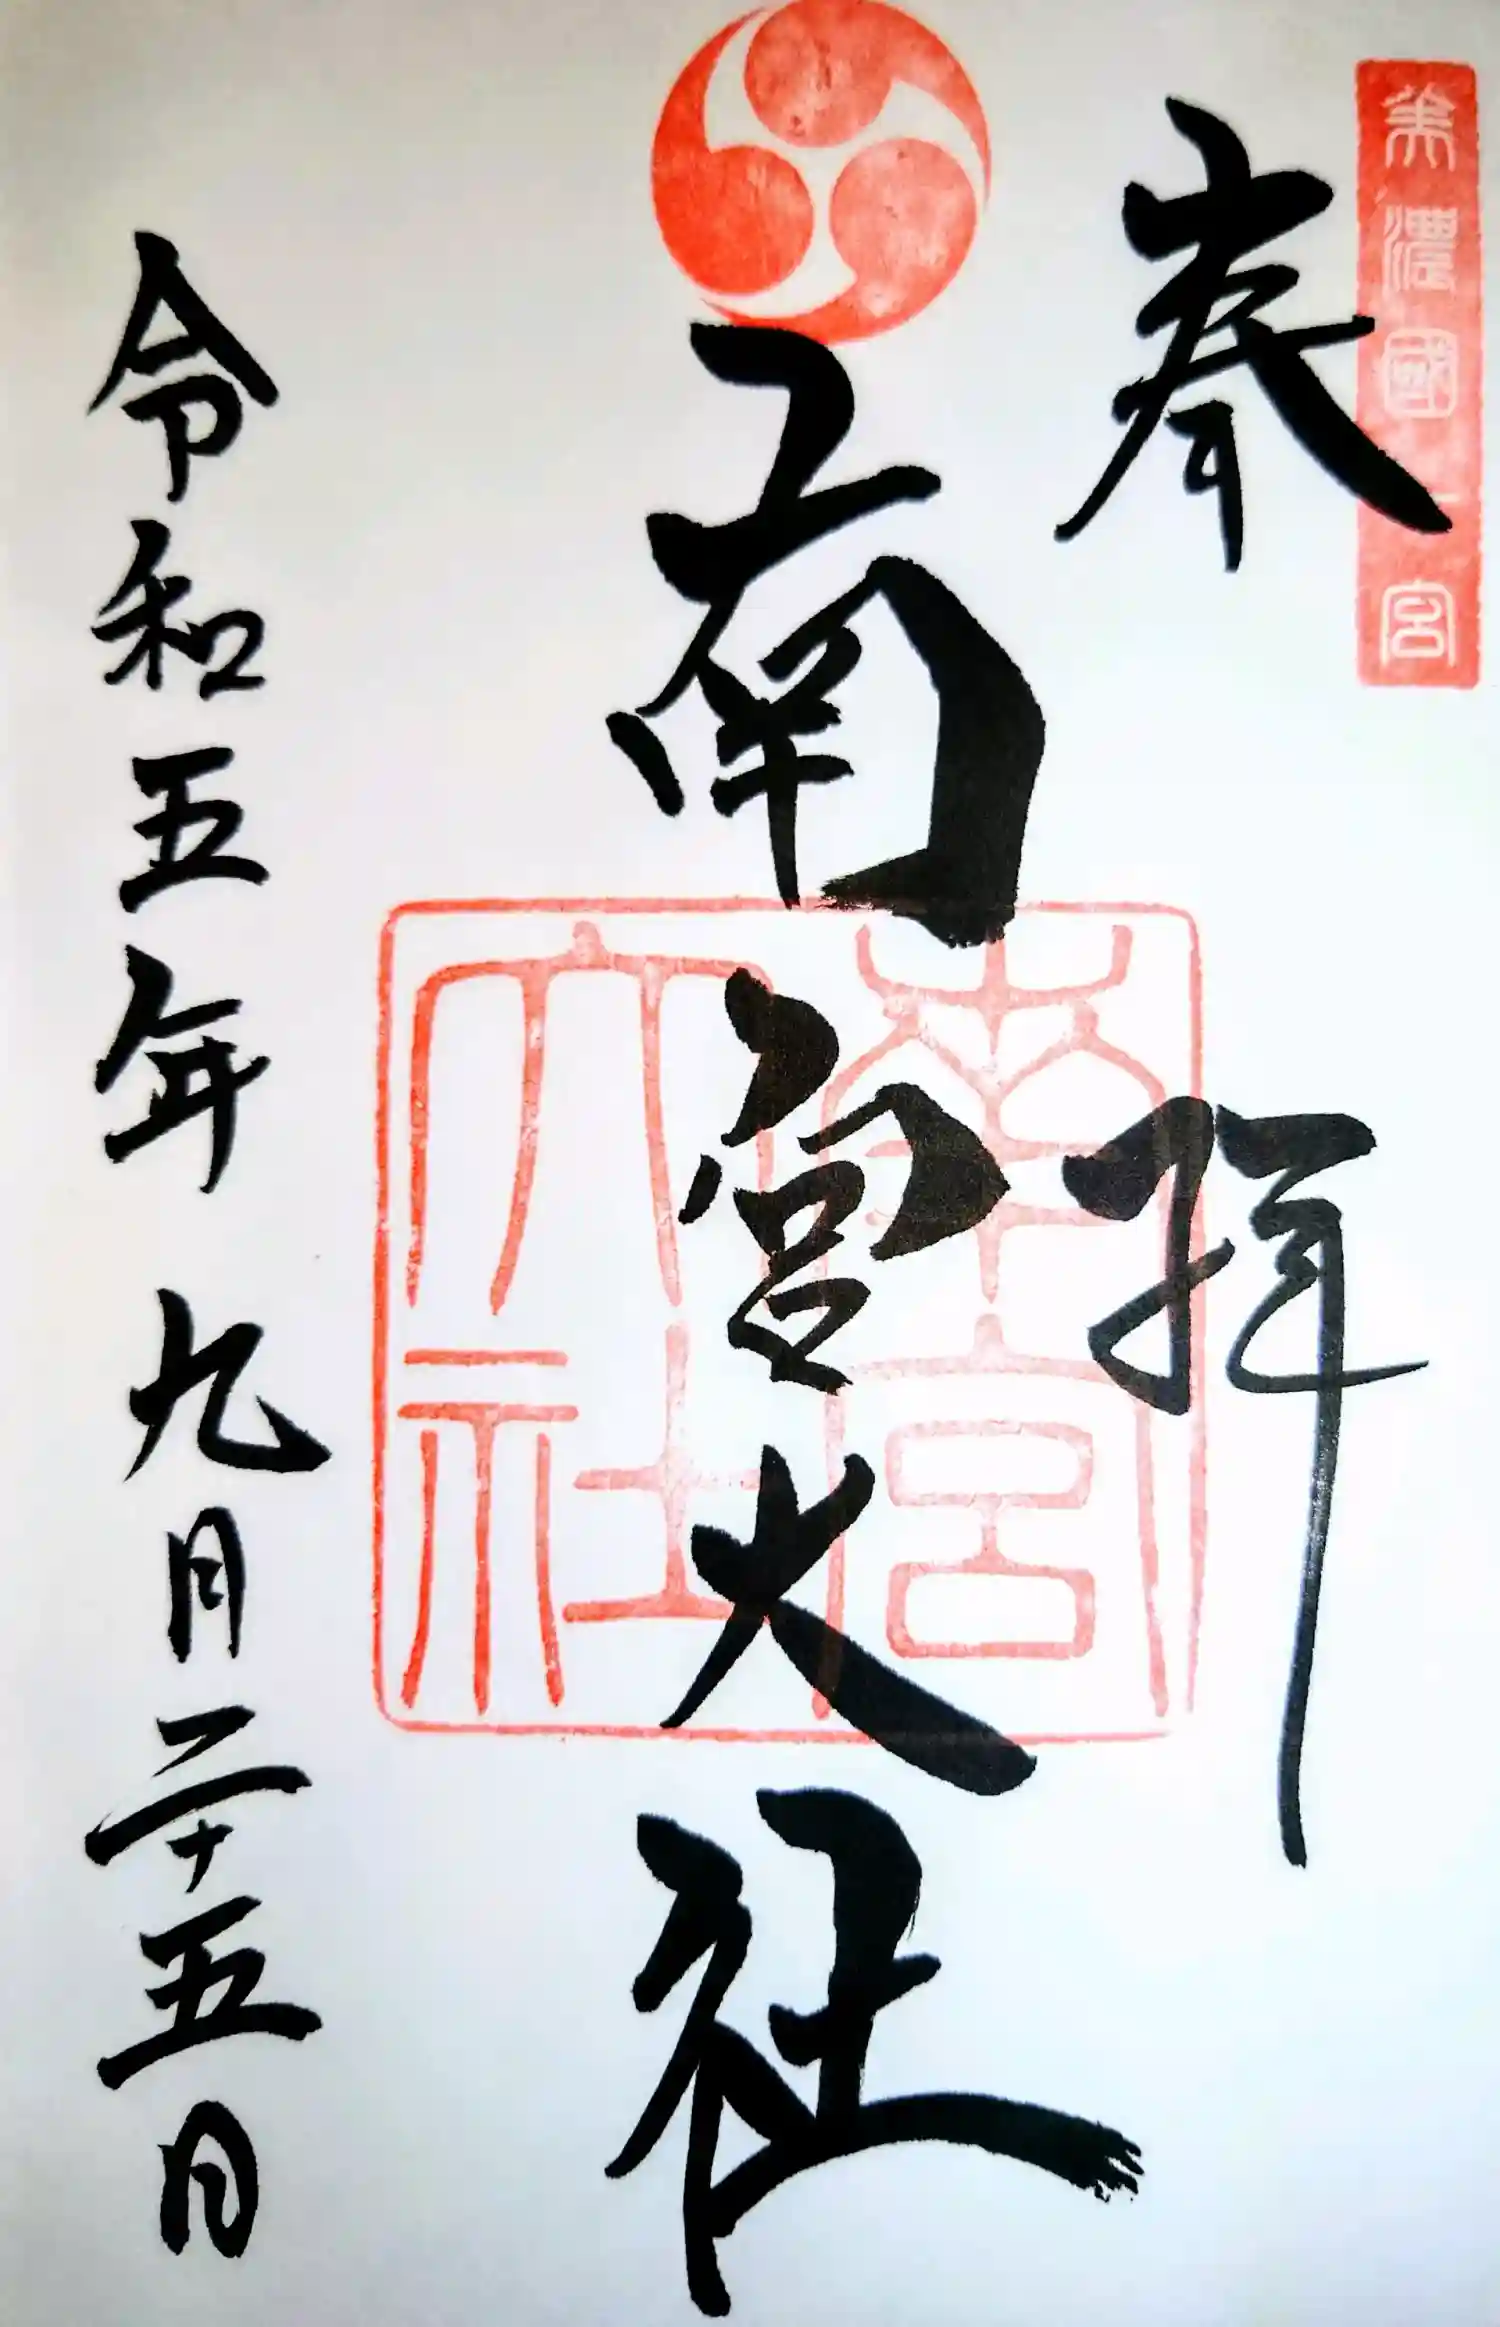 美濃國一宮
奉拝
南宮大社
南宮
大社
令和五年九月二十五日